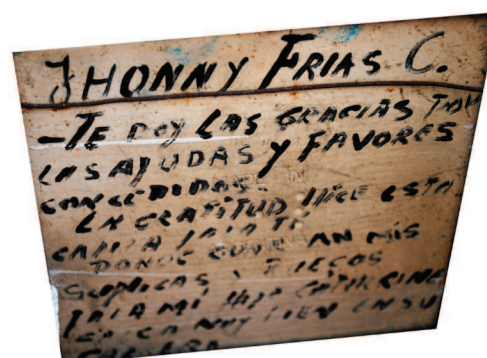 JHONNY FRIAS C.
-TE DOY LAS GRACIAS POR
LAS AYUDAS Y FAVORES
CONCEDIDAS.
EN GRATITUD HICE ESTA
CAPILLA PARA TI
DONDE AN MIS
SUPLICAS Y RUEGOS
PARA MI HIJA CATHERINE
BIEN EN SU